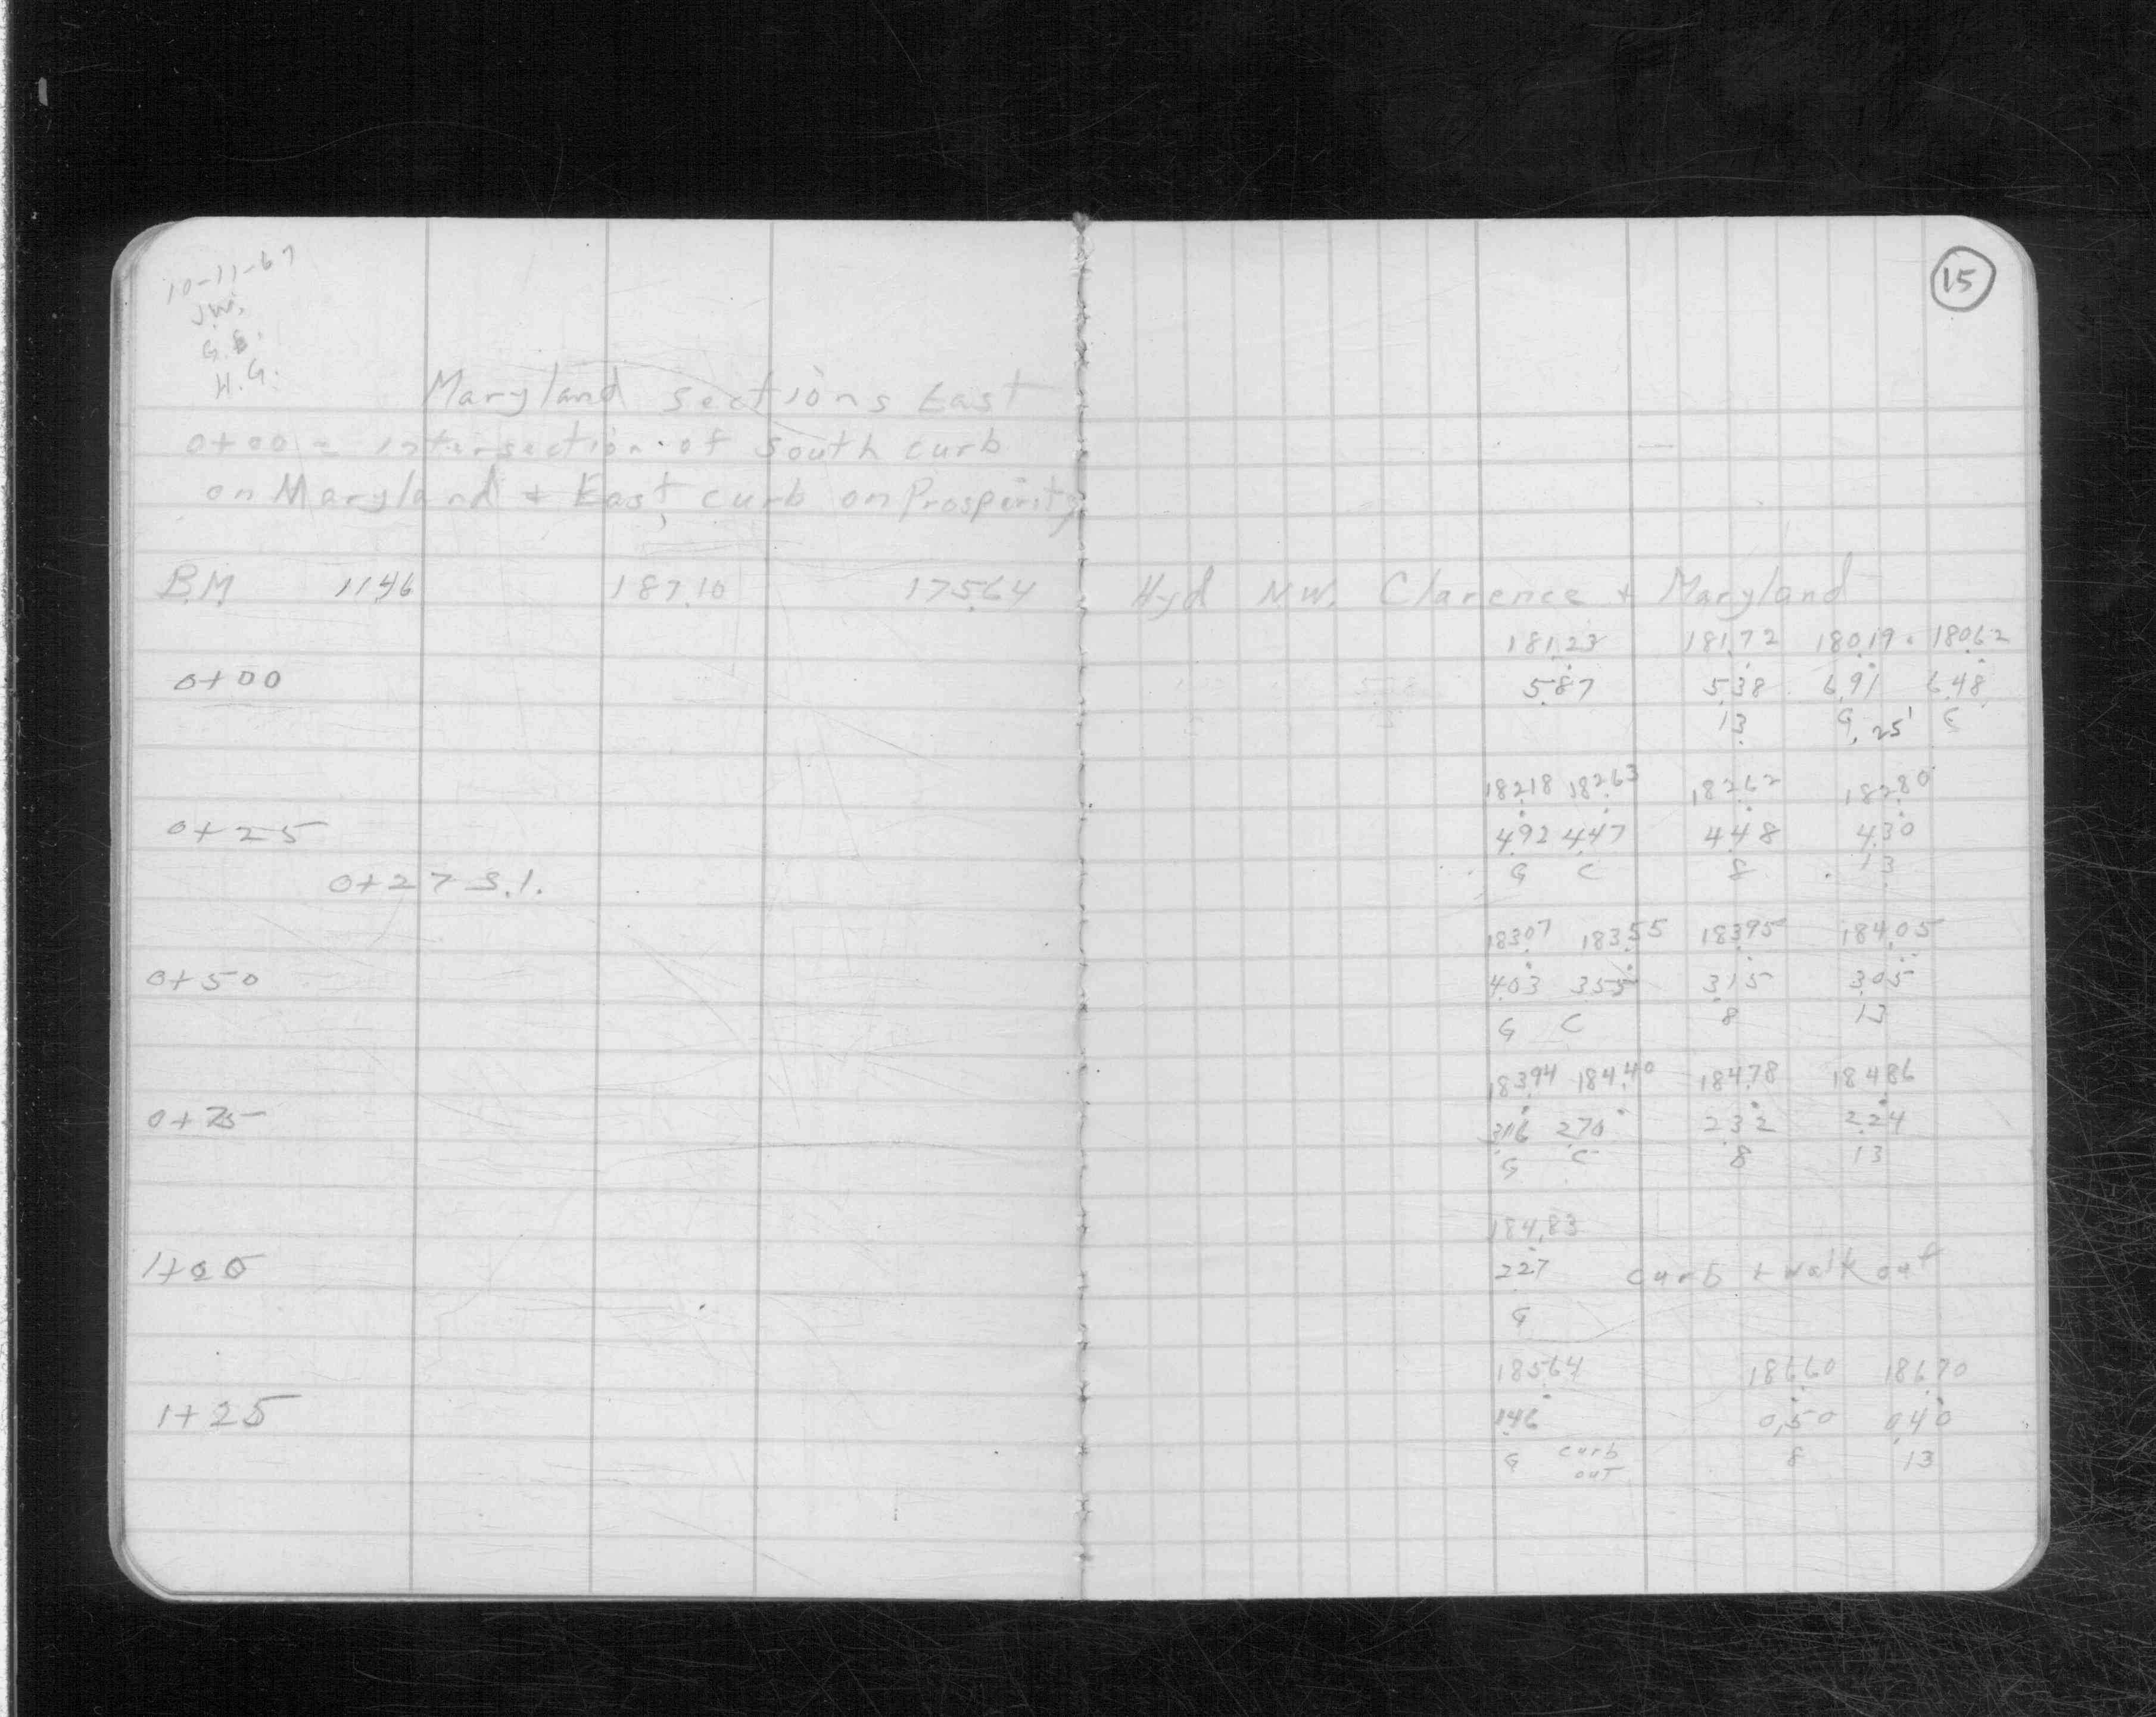 15
10-11-67
J.W.
G.B.
H.G.
Maryland Sections East
0+00 = intersection of south curb
on Maryland + East curb on Prosperity
B.M. 11.46 187.10 175.64 Hyd N.W. Clarence + Maryland
181.23 181.72 180.19 180.62
0+00 5.87 5.38 6.91 6.48
13 G 25' C
182.18 182.63 182.62 182.80
0+25 4.92 4.47 4.48 4.30
0+27 S.I. G C 8 13
183.07 183.55 183.95 184.05
0+50 4.03 3.55 3.15 3.05
G C 8 13
183.94 184.40 184.78 184.86
0+75 3.16 2.70 2.32 2.24
G C 8 13
184.83
1+00 2.27 curb + walk out
G
185.64 186.60 186.70
1+25 1.46 0.50 0.40
G curb out 8 13